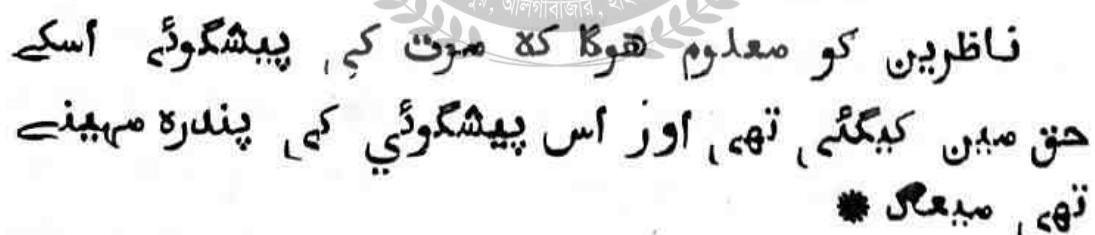 ناظرین کو معلوم هوگا که موت کی پیشگوئے اسکے
حق مین کیگئی تهی اور اس پیشگوئي کی پندره مهینے
تهی میعاد *